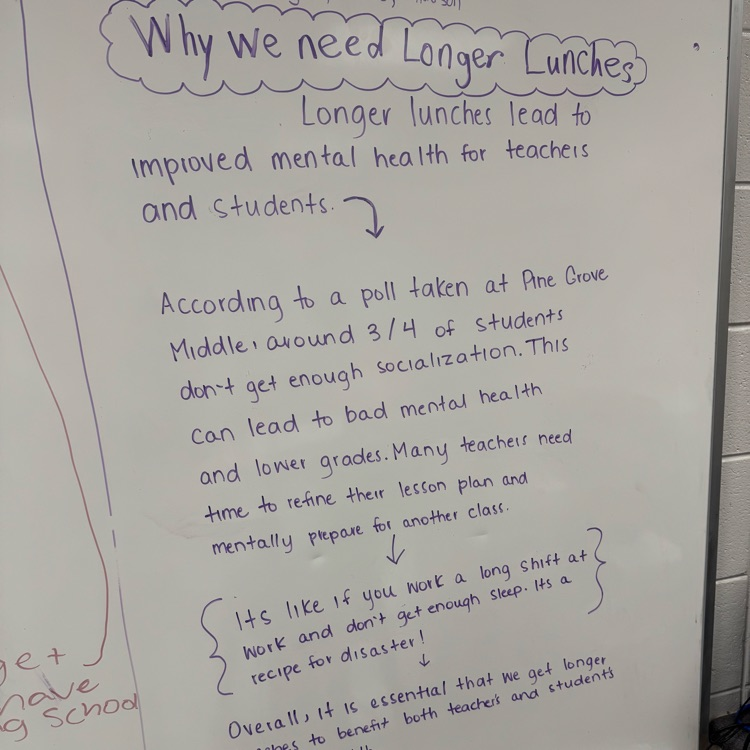 Why We need Longer Lunches
Longer lunches lead to
improved mental health for teachers
and students.
According to a poll taken at Pine Grove
Middle, around 3/4 of students
don't get enough socialization. This
can lead to bad mental health
and lower grades. Many teachers need
time to refine their lesson plan and
mentally prepare for another class.
Its like if you work a long shift at
work and don't get enough sleep. Its a
recipe for disaster!
Overall, it is essential that we get longer
to benefit both teachers and students
get
have
School